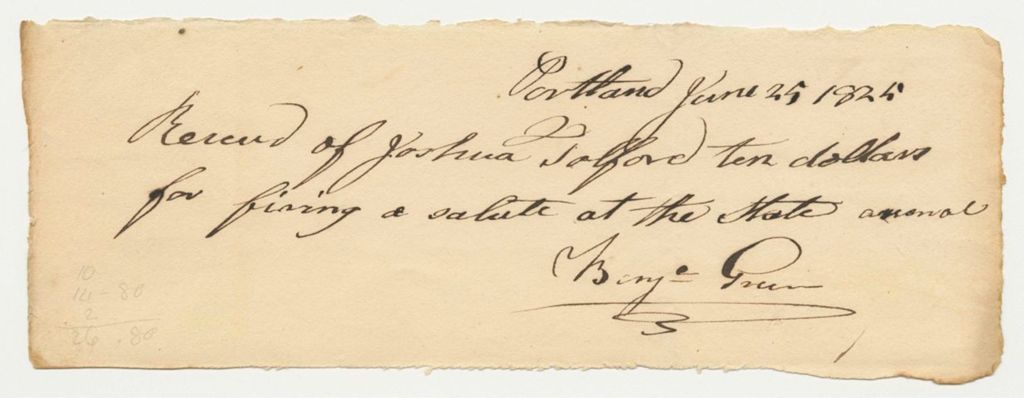 Portland June 25 1825
Received of Joshua Tolford ten dollars
for firing a salute at the State arsenal
Benja Green
10
14-80
2
26.80